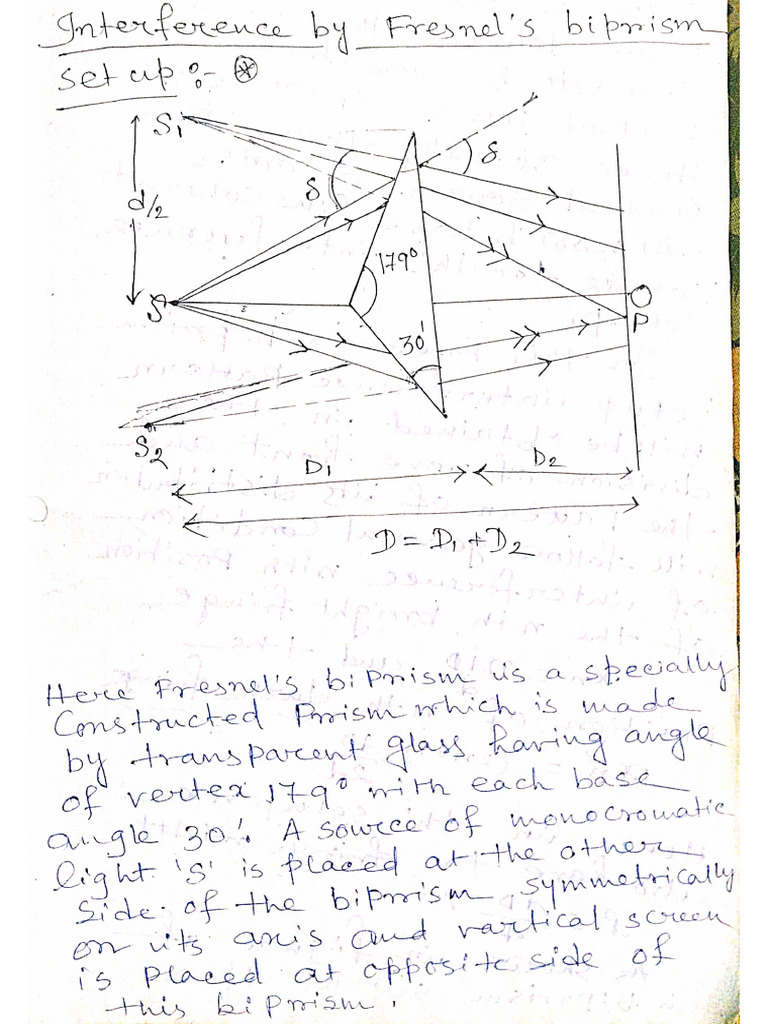 Interference by Fresnel's biprism
set up :-
S1
δ
δ
d/2
179°
S
O
P
30'
S2
D1
D2
D = D1 + D2
Here Fresnel's biprism is a specially
Constructed Prism which is made
by transparent glass having angle
of vertex 179° with each base
angle 30'. A source of monocromatic
light 'S' is placed at the other
side of the biprism symmetrically
on its axis and vartical screen
is placed at opposite side of
this biprism.